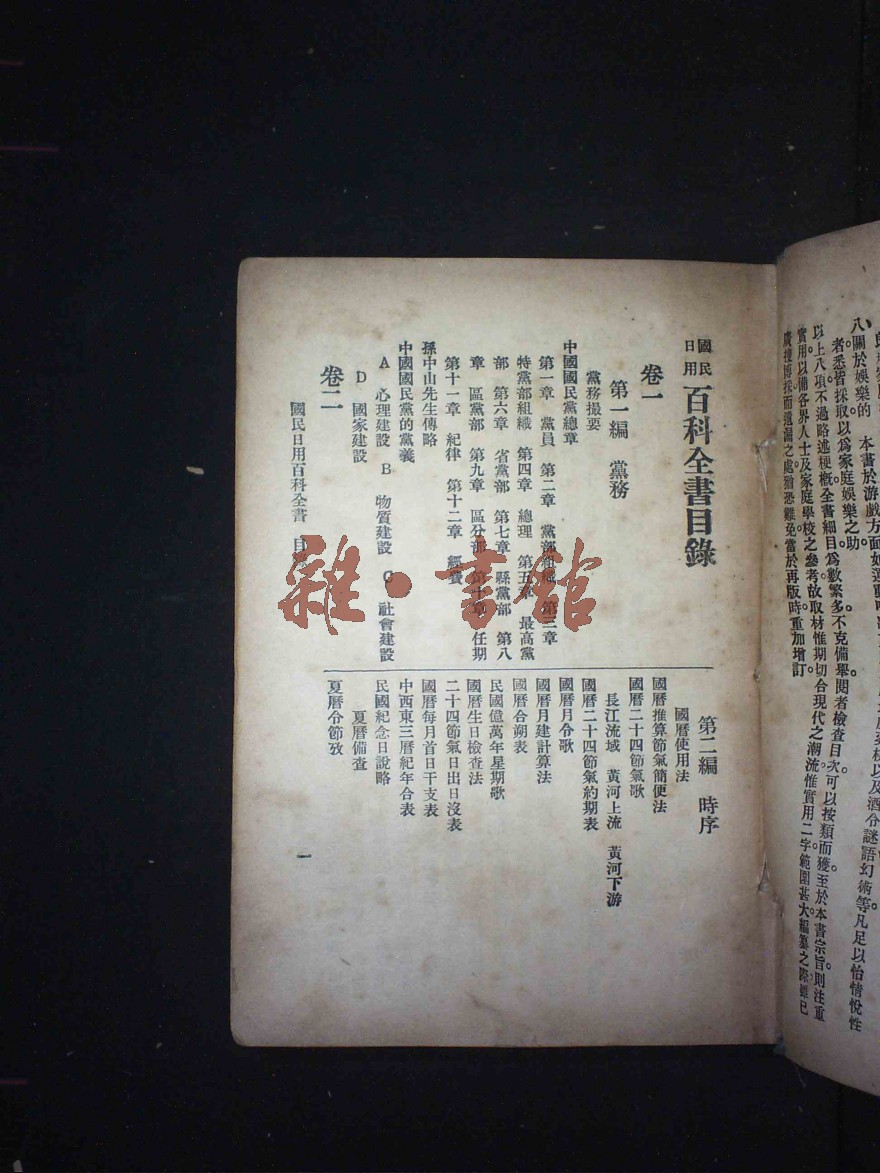 八關於娛樂的　本書於游戲方面如運動
者悉皆採取以爲家庭娛樂之助。
以上八項不過略述梗概全書細目爲數繁多。不克備舉閱者檢查目次可以按類而獲至於本書宗旨則注重
實用。以備各界人士及家庭學校之參考故取材惟期切合現代之潮流惟實用二字範圍甚大編纂之際雖已
廣搜博採而遺漏之處猶恐難免當於再版時重加增訂
國民日用百科全書目錄
卷一
第一編　黨務
黨務撮要
中國國民黨總章
第一章　黨員　第二章　黨部組織　第三章
特黨部組織　第四章　總理　第五章　最高黨
部　第六章　省黨部　第七章　縣黨部　第八
章　區黨部　第九章　區分部　第十章　任期
第十一章　紀律　第十二章　經費
孫中山先生傳略
中國國民黨的黨義
A　心理建設　B　物質建設　C　社會建設
D　國家建設
卷二
第二編　時序
國曆使用法
國曆推算節氣簡便法
國曆二十四節氣歌
長江流域　黃河上流　黃河下游
國曆二十四節氣約期表
國曆月令歌
國曆月建計算法
國曆合朔表
民國億萬年星期歌
國曆生日檢查法
二十四節氣日出日沒表
國曆每月首日干支表
中西東三曆紀年合表
民國紀念日說略
夏曆備查
夏曆令節攷
國民日用百科全書　目錄
一
雜·書館